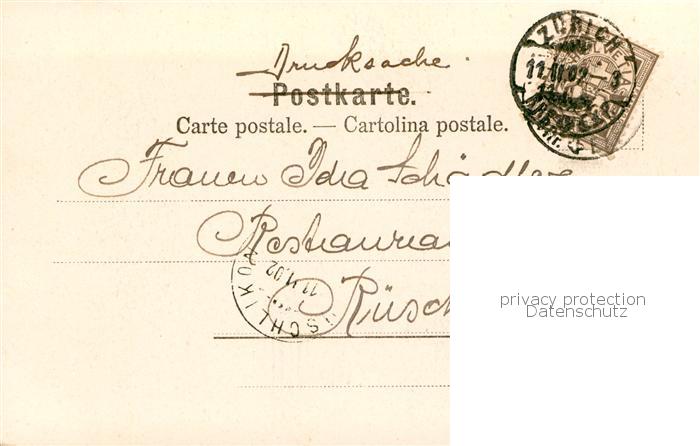 Drucksache.
Postkarte.
ZÜRICH
HELVETIA
11.II.02
Carte postale. — Cartolina postale.
Frauen Ida
Restaura
Rüsch
SCHLIKON
11.II.02
privacy protection
Datenschutz